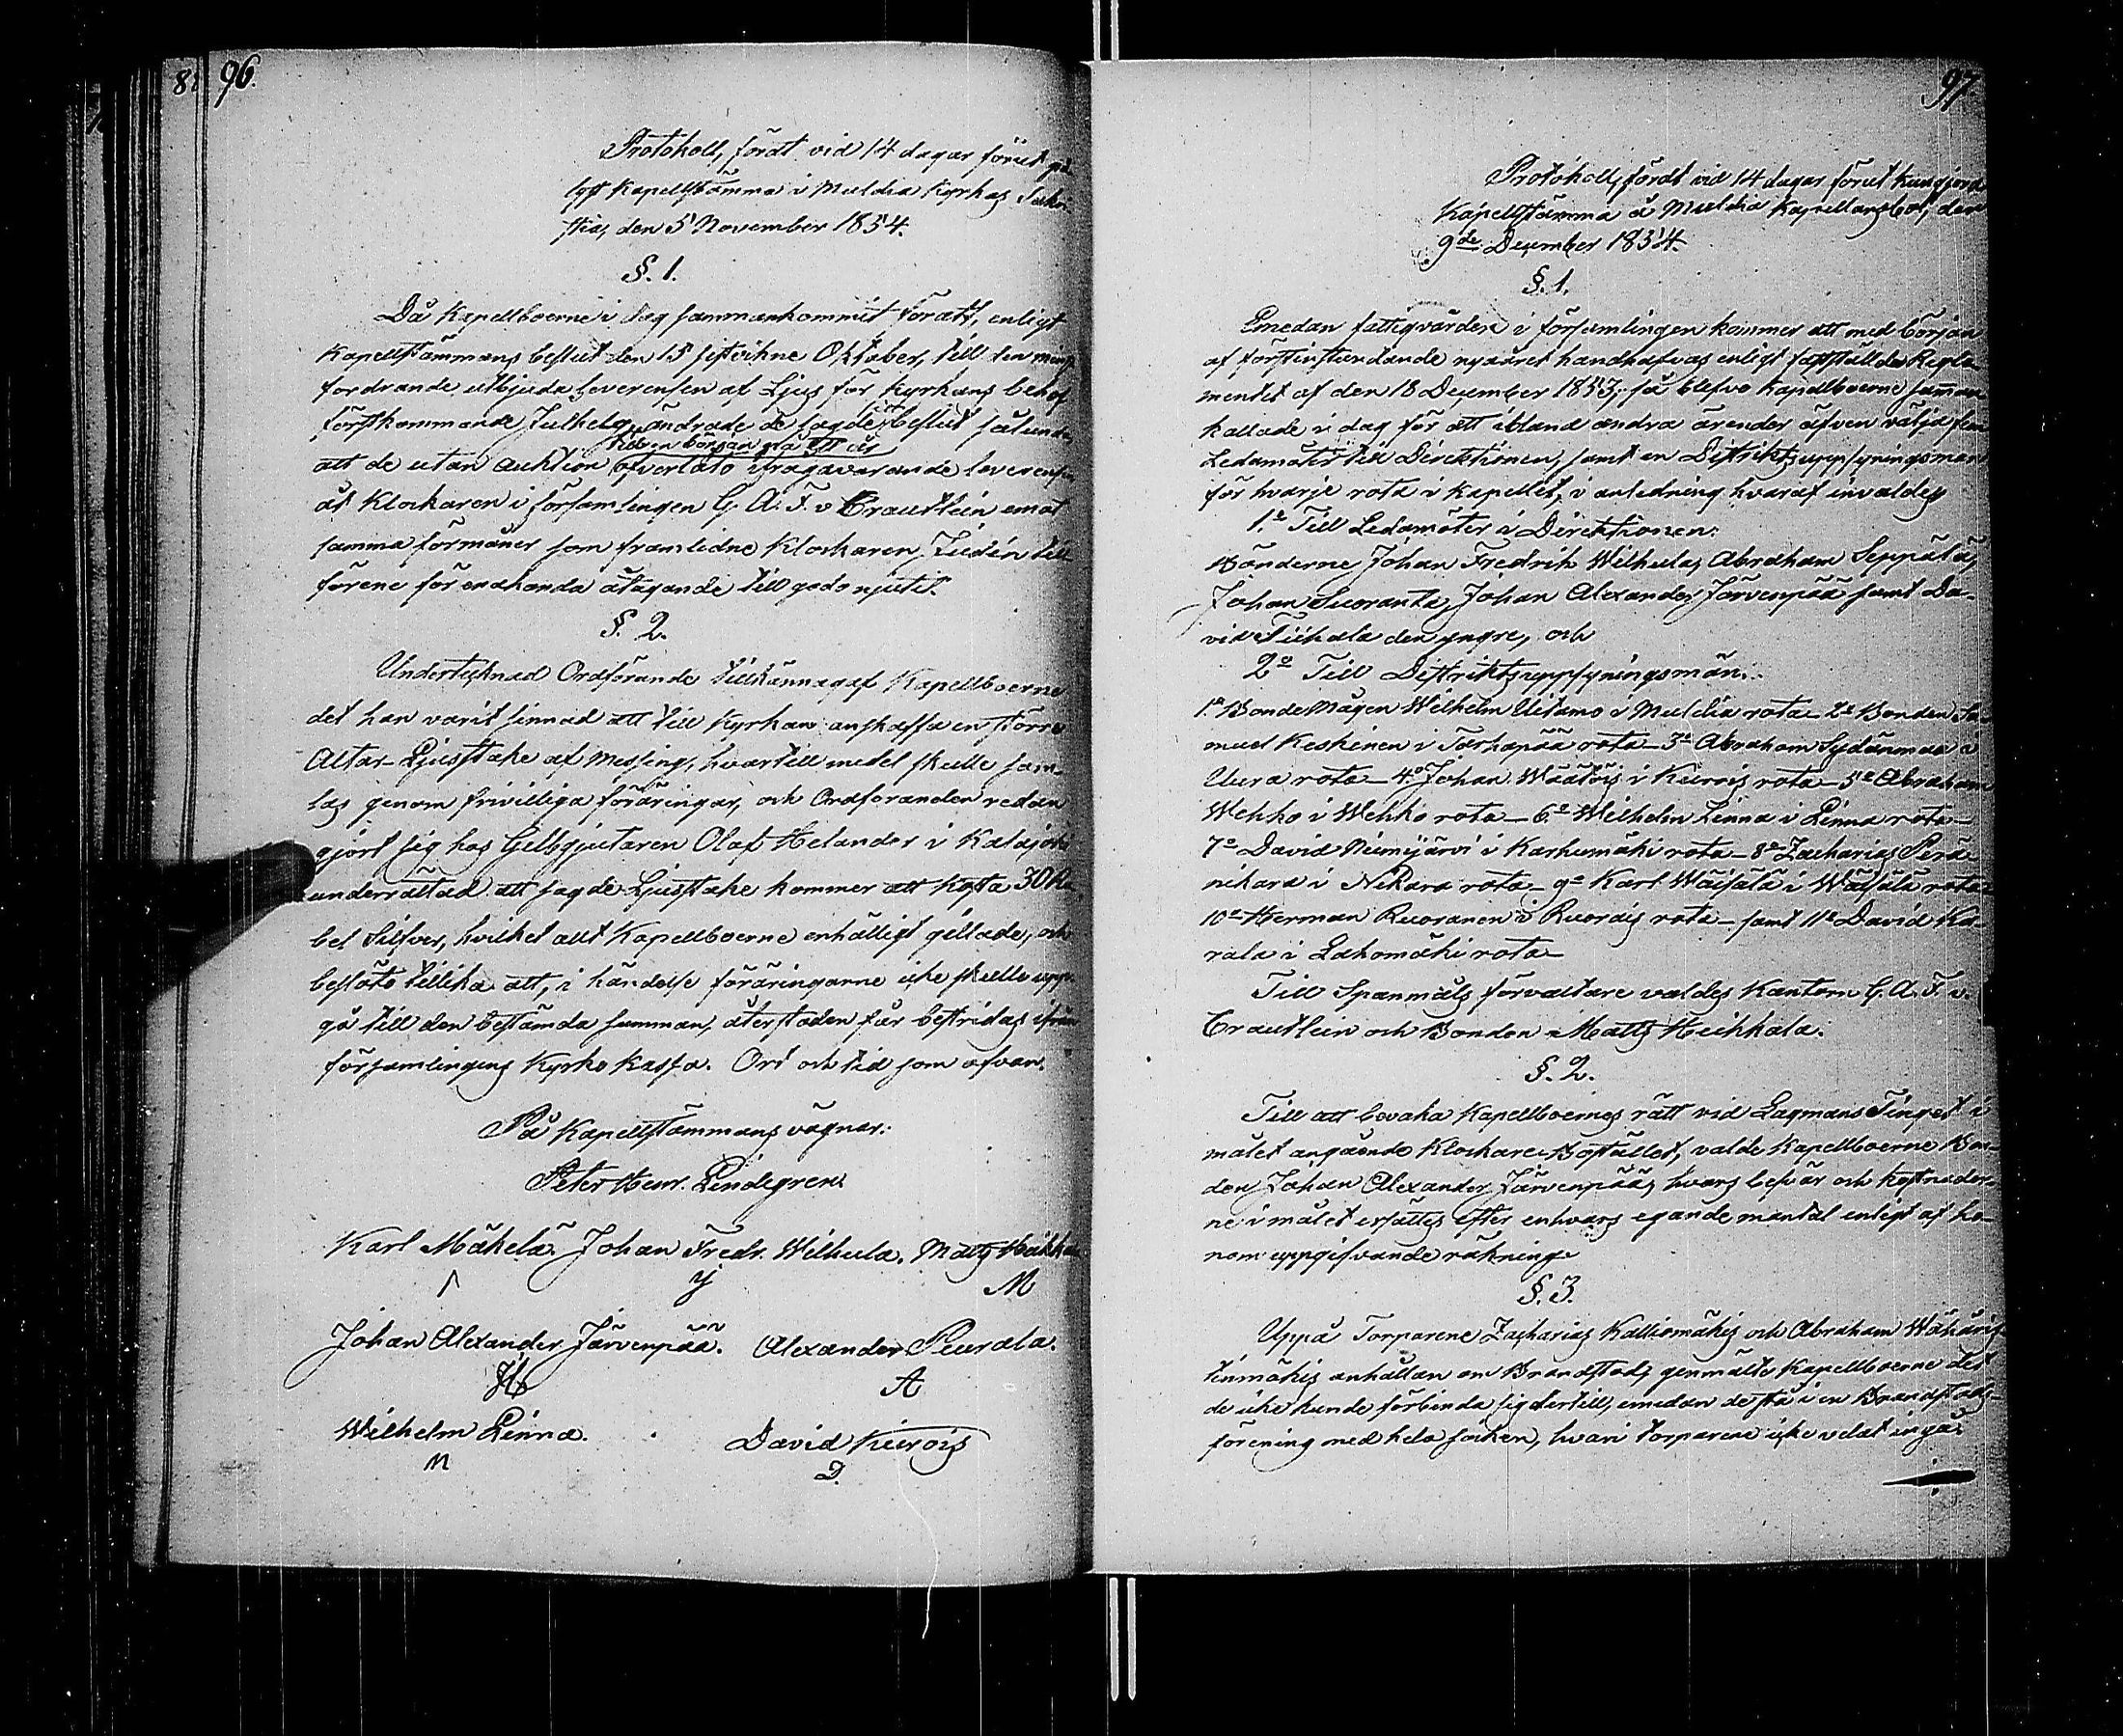 96.
Protokoll, fördt vid 14 dagar förut på-
lyst Kapellstämma i Muldia Kyrkas Sakri-
stia, den 5 November 1854.
§. 1.
Då Kapellboerne i dag sammankommit föratt, enligt
Kapellstämmans beslut den 15 sistvikne Oktober, till den minst
fordrande utbjuda leverensen af Ljus för Kyrkans behof
förstkommande Julhelg, ändrade de sagde beslut sålunda,
från början på ett år
att de utan auktion öfverläto ifrågavarande leverensen
åt Klockaren i församlingen G. A. F. v Crautlein emot
samma förmåner som framlidne Klockaren Judén till-
förene för enahanda åtagande till godo njutit.
§. 2.
Undertecknad Ordförande tillkännagaf Kapellboerne
det han varit sinnad att till Kyrkan anskaffa en större
Altar-Ljusstake af Messing, hvartill medel skulle sam-
las genom frivilliga föräringar, och Ordföranden redan
gjort sig hos Gelbgjutaren Olof Helander i Kalajoki
underrättad att sagde Ljusstake kommer att kosta 30 Ru-
bel Silfver, hvilket allt Kapellboerne enhälligt gillade, och
beslöto tillika att, i händelse föräringarne icke skulle upp-
gå till den bestämda summan, återstoden får bestridas ifrån
församlingens Kyrko Kassa. Ort och tid som ofvan.
På Kapellstämmans vägnar:
Peter Henr. Lindegren.
Karl Mäkelä. Johan Fredr. Wilhula. Matts Heikkala
M
Johan Alexander Järvenpää. Alexander Peurala.
A
Wilhelm Linna. David Kiurois
D.
97.
Protokoll, fördt vid 14 dagar förut kungjord
Kapellstämma å Muldia Kapellansbol, den
9de December 1854.
§. 1.
Emedan fattigvården i församlingen kommer att med början
af förstinstundande nyåret handhafvas enligt fastställda Regle-
mentet af den 18 December 1853; så blefvo Kapellboerne samman
kallade i dag för att ibland andra ärender äfven välja fem
Ledamöter till Direktionen, samt en Distriktsuppsyningsman
för hvarje rota i Kapellet, i anledning hvaraf invaldes
1.o Till Ledamöter i Direktionen:
Bönderne Johan Fredrik Wilhula, Abraham Seppälä,
Johan Suoranta, Johan Alexander Järvenpää samt Da-
vid Tiihala den yngre, och
2o Till Distriktsuppsyningsmän:
1.o BondeMågen Wilhelm Uitamo i Muldia rota – 2o Bonden Sa-
muel Keskinen i Tarhapää rota – 3o Abraham Sydänmaa i
Uura rota – 4.o Johan Wäätöis i Kiurois rota – 5o Abraham
Wehko i Wehko rota – 6.o Wilhelm Linna i Linna rota –
7o David Niinijärvi i Karhumäki rota – 8o Zacharias Perä-
nikara i Nikara rota – 9o Karl Wäisälä i Wäisälä rota –
10o Herman Ruoranen i Ruorais rota – samt 11o David Ka-
rala i Lahomäki rota –
Till Spanmåls förvaltare valdes Kantorn G. A. F. v.
Crautlein och Bonden Matts Heikkala.
§. 2.
Till att bevaka Kapellboernes rätt vid Lagmans Tinget i
målet angående Klockare Bostället, valde Kapellboerne Bon-
den Johan Alexander Järvenpää, hvars besvär och kostnader-
ne i målet ersättes efter enhvars egande mantal enligt af ho-
nom uppgifvande räkning.
§. 3.
Uppå Torparene Zacharias Kalliomäkis och Abraham
anhållan om Brandstod, genmälte Kapellboerne det
de icke kunde förbinda sig dertill, emedan de stå i en Brandstods-
förening med hela socken, hvari torparene icke velat ingå.